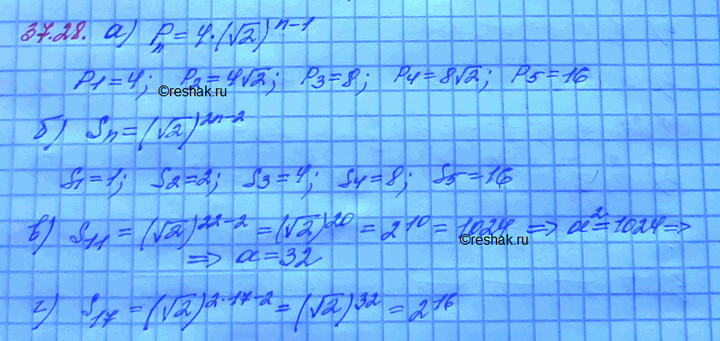 37.28. а) Pₙ = 4·(√2)ⁿ⁻¹
P1 = 4; P2 = 4√2; P3 = 8; P4 = 8√2; P5 = 16
©reshak.ru
б) Sₙ = (√2)²ⁿ⁻²
S1 = 1; S2 = 2; S3 = 4; S4 = 8; S5 = 16
в) S₁₁ = (√2)²²⁻² = (√2)²⁰ = 2¹⁰ = 1024 ⇒ a² = 1024 ⇒
©reshak.ru
⇒ a = 32
г) S₁₇ = (√2)²·¹⁷⁻² = (√2)³² = 2¹⁶